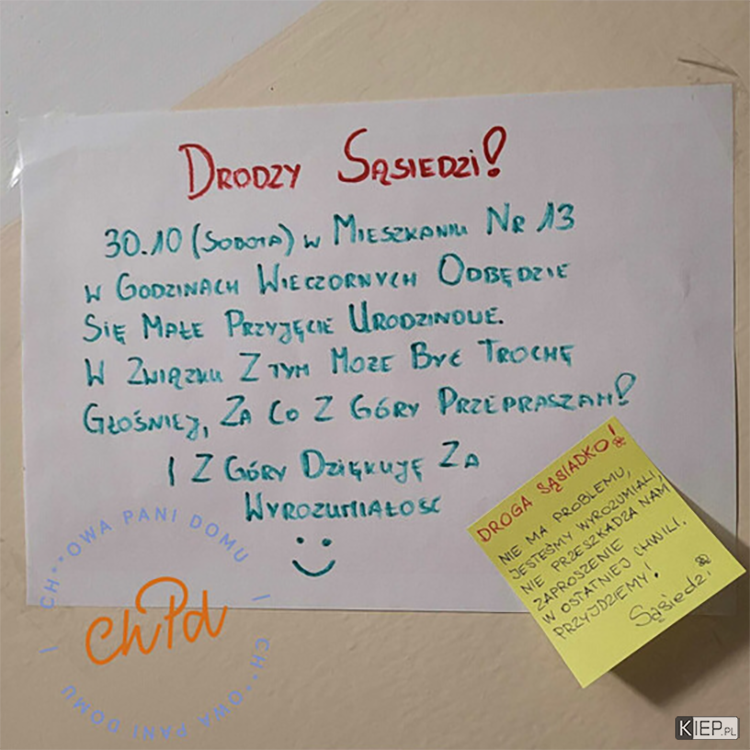 DRODZY SĄSIEDZI!
30.10 (SOBOTA) W MIESZKANIU NR 13
W GODZINACH WIECZORNYCH ODBĘDZIE
SIĘ MAŁE PRZYJĘCIE URODZINOWE.
W ZWIĄZKU Z TYM MOŻE BYĆ TROCHĘ
GŁOŚNIEJ, ZA CO Z GÓRY PRZEPRASZAM!
I Z GÓRY DZIĘKUJĘ ZA
WYROZUMIAŁOŚĆ
DROGA SĄSIADKO!
NIE MA PROBLEMU,
JESTEŚMY WYROZUMIALI
NIE PRZESZKADZA NAM
ZAPROSZENIE
W OSTATNIEJ CHWILI.
PRZYJDZIEMY!
Sąsiedzi
I CH**OWA PANI DOMU I CH**OWA PANI DOMU
ChPd
KIEP.PL